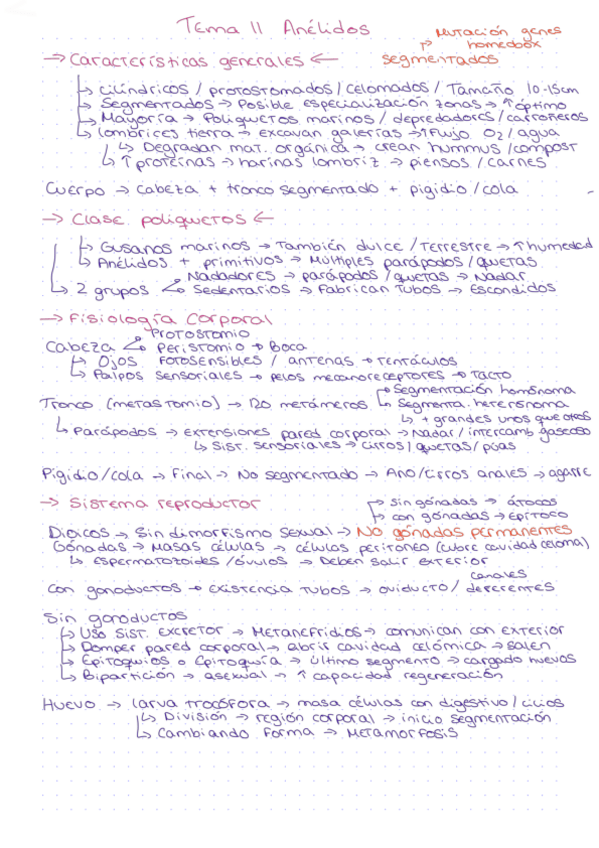 Tema 11 Anélidos
Mutación genes
homeobox
→ Características generales ← segmentados
↳ cilíndricos / protostomados / celomados / Tamaño 10-15cm
↳ Segmentados → Posible especialización zonas → ↑óptimo
↳ Mayoría → Poliquetos marinos / depredadores / carroñeros
↳ lombrices tierra → excavan galerías → ↑flujo O2 / agua
↳ Degradan mat. orgánica → crean hummus / compost
↳ ↑ proteínas → harinas lombriz → piensos / carnes
Cuerpo → cabeza + tronco segmentado + pigidio / cola
→ Clase poliquetos ←
↳ Gusanos marinos → También dulce / Terrestre → ↑humedad
↳ Anélidos + primitivos → Múltiples parápodos / quetas
Nadadores → parápodos / quetas → Nadar
↳ 2 grupos Sedentarios → Fabrican tubos → Escondidos
→ Fisiología corporal
Protostomio
Cabeza Peristomio → Boca
↳ Ojos fotosensibles / antenas → tentáculos
↳ Palpos sensoriales → pelos mecanoreceptores → tacto
Segmentación homónoma
Tronco (metastomio) → 120 metámeros Segmenta. heterónoma
↳ + grandes unos que otros
↳ Parápodos → Extensiones pared corporal → Nadar / intercamb gaseoso
↳ Sist. sensoriales → cirros / quetas / púas
Pigidio / cola → Final → No segmentado → Ano / cirros anales → agarre
→ Sistema reproductor
sin gónadas → átocos
con gónadas → epítoco
Dioicos → Sin dimorfismo sexual → No gónadas permanentes
Gónadas → Masas células → células peritoneo (cubre cavidad celoma)
↳ Espermatozoides / óvulos → Deben salir exterior
canales
Con gonoductos → Existencia tubos → oviducto / deferentes
Sin gonoductos
↳ Uso sist. excretor → Metanefridios → comunican con exterior
↳ Romper pared corporal → abrir cavidad celómica → salen
↳ Epitoquios o Epitoquía → último segmento → cargado huevos
↳ Bipartición → asexual → ↑ capacidad regeneración
Huevo → larva trocófora → masa células con digestivo / cilios
↳ División → región corporal → inicio segmentación
↳ Cambiando forma → Metamorfosis